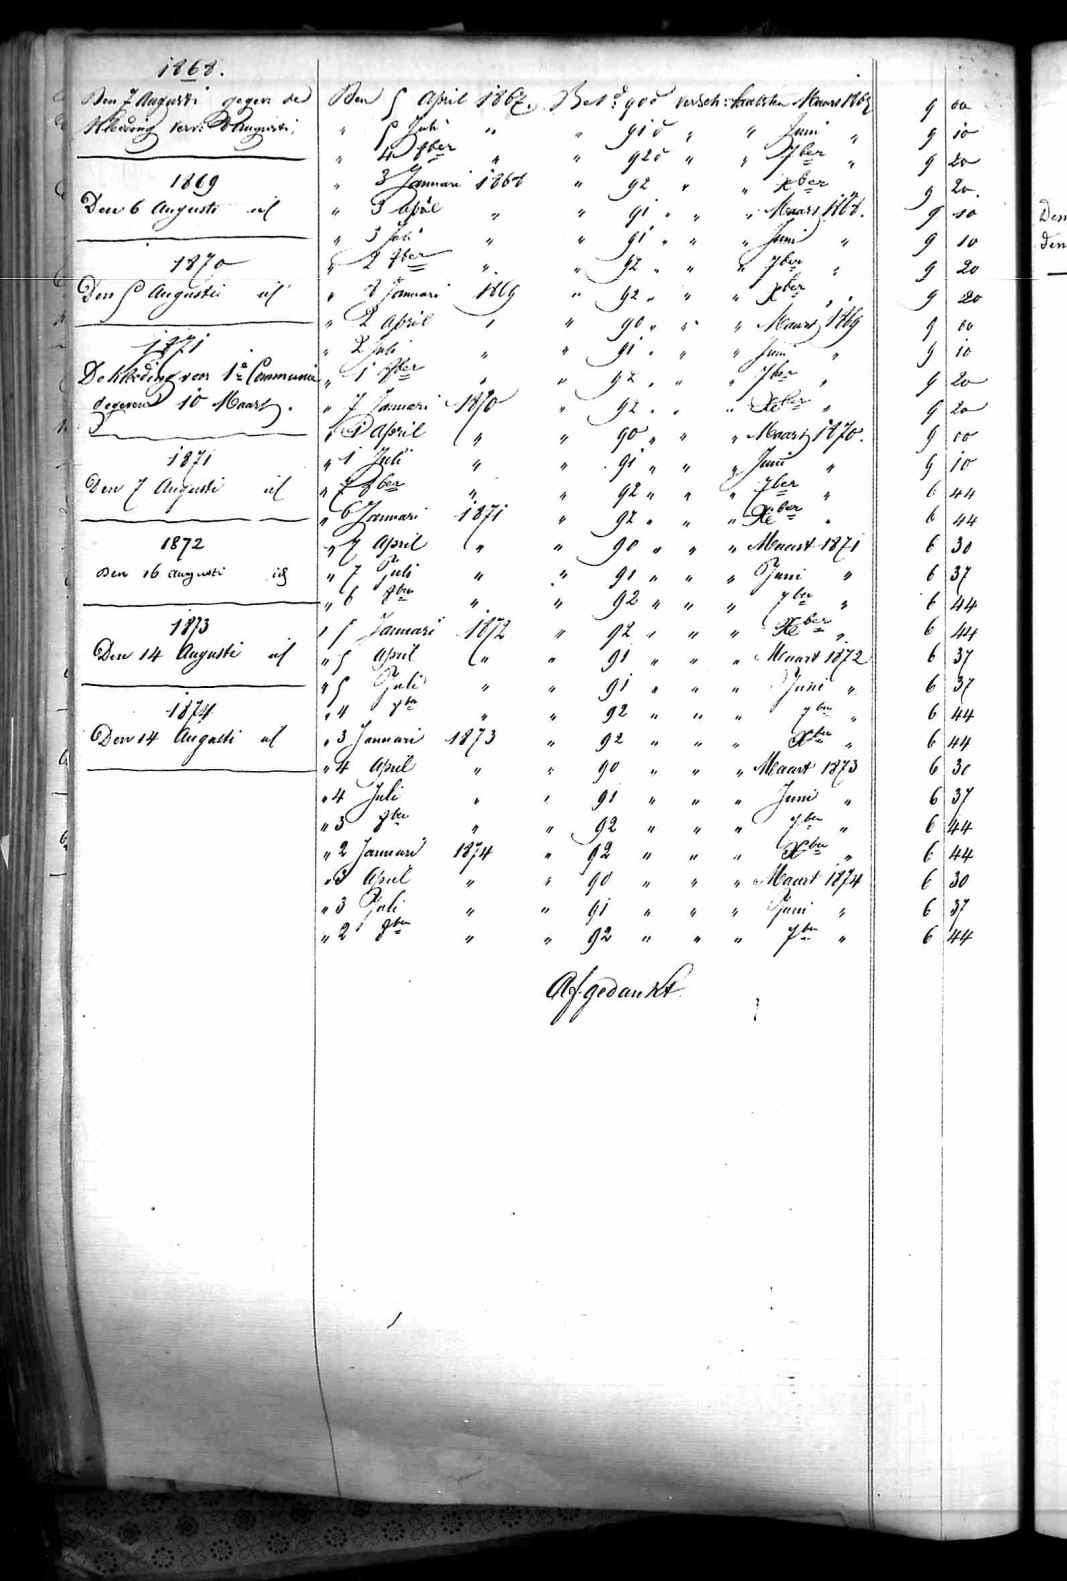 1868.
Den 7 Augusti gegev: de
Kleeding verv: Augusti,
1869
Den 6 Augusti id
1870
Den 5 Augusti id
1871
De Kleeding voor 1e Communie
gegeven 10 Maart.
1871
Den 7 Augusti id
1872
Den 16 augusti id
1873
Den 14 Augusti id
1874
Den 14 Augusti id
Den 5 April 1867. Bet: 90 d versch: Maart 1867 9 00
" 5 Juli " " 91 d " " Juni " 9 10
" 4 8ber " " 92 d " " 7ber " 9 20
" 3 Januari 1868 " 92 " " Xber " 9 20
" 3 April " " 91 " " " Maart 1868. 9 10
" 3 Juli " " 91 " " " Juni " 9 10
" 2 8ber " " 92 " " " 7ber " 9 20
" 8 Januari 1869 " 92 " " " Xber " 9 20
" 2 April " " 90 " " " Maart 1869 9 00
" 2 Juli " " 91 " " " Juni " 9 10
" 1 8ber " " 92 " " " 7ber " 9 20
" 7 Januari 1870 " 92 " " " Xber " 9 20
" 1 April " " 90 " " " Maart 1870. 9 00
" 1 Juli " " 91 " " " Juni " 9 10
" 7 8ber " " 92 " " " 7ber " 6 44
" 6 Januari 1871 " 92 " " " Xber " 6 44
" 7 April " " 90 " " " Maart 1871 6 30
" 7 Juli " " 91 " " " Juni " 6 37
" 6 8ber " " 92 " " " 7ber " 6 44
" 5 Januari 1872 " 92 " " " Xber " 6 44
" 5 April " " 91 " " " Maart 1872 6 37
" 5 Juli " " 91 " " " Juni " 6 37
" 4 8ber " " 92 " " " 7ber " 6 44
" 3 Januari 1873 " 92 " " " Xber " 6 44
" 4 April " " 90 " " " Maart 1873 6 30
" 4 Juli " " 91 " " " Juni " 6 37
" 3 8ber " " 92 " " " 7ber " 6 44
" 2 Januari 1874 " 92 " " " Xber " 6 44
" 3 April " " 90 " " " Maart 1874 6 30
" 3 Juli " " 91 " " " Juni " 6 37
" 2 8ber " " 92 " " " 7ber " 6 44
Afgedankt.
Den
den